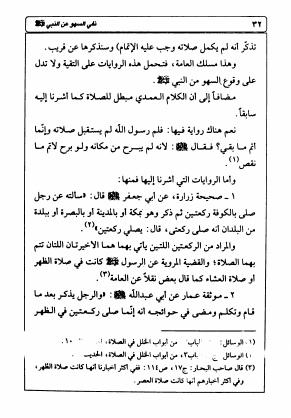 ٣٢ نفي السهو عن النبي ﷺ
تذكّر أنه لم يكمل صلاته وجب عليه الإتمام) وسنذكرها عن قريب.
وهذا مسلك العامة، فتحمل هذه الروايات على التقية ولا تدل
على وقوع السهو من النبي ﷺ.
مضافاً إلى أن الكلام العمدي مبطل للصلاة كما أشرنا إليه
سابقاً.
نعم هناك رواية فيها: فلم رسول الله لم يستقبل صلاته وإنّما
اتم ما بقي؟ فقال ﷺ: لأنه لم يبرح من مكانه ولو برح لأتم ما
نقص(١).
وأما الروايات التي أشرنا إليها فمنها:
١ ـ صحيحة زرارة، عن أبي جعفر ﷺ قال: «سألته عن رجل
صلى بالكوفة ركعتين ثم ذكر وهو بمكة أو بالمدينة أو بالبصرة أو ببلدة
من البلدان أنه صلى ركعتي، قال: يصلي ركعتين»(٢).
والمراد من الركعتين اللتين يأتي بهما هما الأخيرتان اللتان تتم
بهما الصلاة؛ والقضية المروية عن الرسول ﷺ كانت في صلاة الظهر
أو صلاة العشاء كما بعض نقلاً عن العامة(٣).
٢ ـ موثقة عمار عن أبي عبدالله ﷺ: «والرجل يذكر بعد ما
قام وتكلم ومضى في حوائجه أنه إنّما صلى ركعتين في الظهر
(١) الوسائل: من أبواب الخلل في الصلاة، ١٠.
الوسائل: من أبواب الخلل في الصلاة،
(٣) قال صاحب البحار: ج١٧، ص١١٤: ففي أكثر أخبارنا أنها كانت صلاة الظهر،
وفي أكثر أخبارهم أنها كانت صلاة العصر.